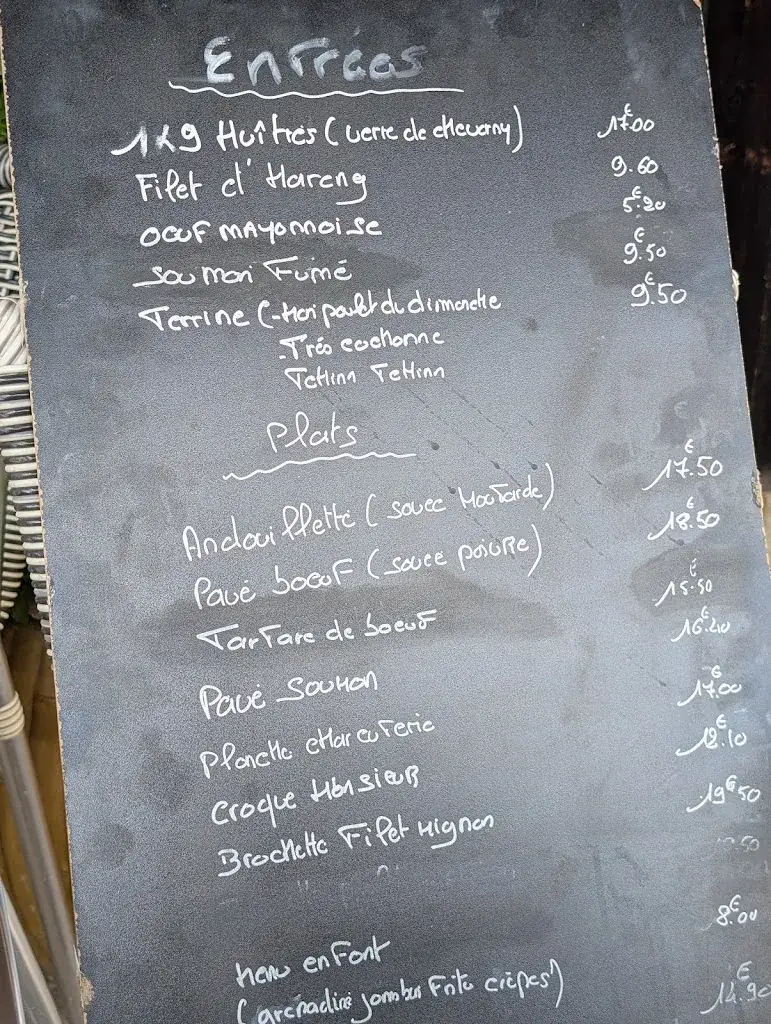 Entrées
1kg Huîtres (verre de cheverny) 17€00
Filet d'Hareng 9.60
oeuf mayonnoise 5€20
Soumon Fumé 9€.50
Terrine (-Mon poulet du dimanche 9€.50
-Très cochonne
Tchinn Tchinn
Plats
Andouillette (souce Moutarde) 17€.50
Pavé boeuf (souce poivre) 18€.50
Tartare de boeuf 15€.50
Pavé Soumon 16€.40
Planche charcuterie 17€.00
Croque Monsieur 12€.10
Brochette Filet Mignon 19€50
.50
Menu enfant 8€.00
(grenadine jambon Frite crêpes) 14€.90